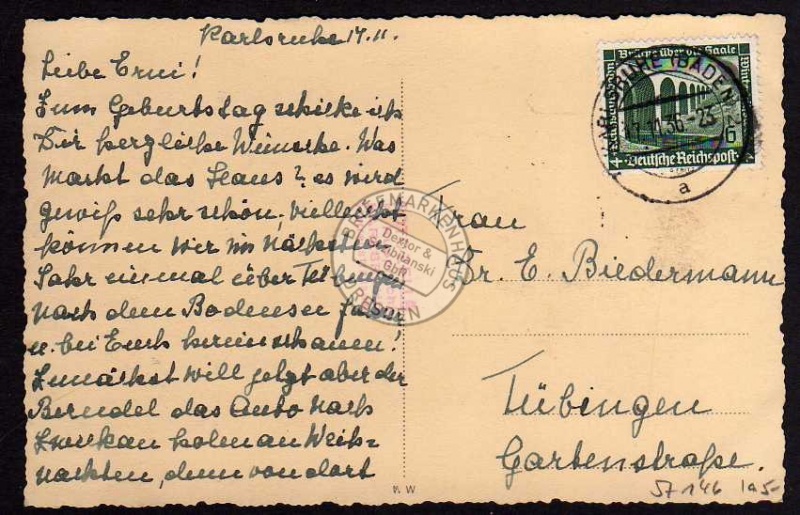 Karlsruhe 17.11.
Liebe Erni!
Zum Geburtstag schicke ich
Dir herzliche Wünsche. Was
macht das Haus? es wird
gewiß sehr schön, vielleicht
können wir im nächsten
Jahr einmal über Tübingen
nach dem Bodensee
u. bei Euch hereinschauen!
Zunächst will jetzt aber der
Berndel das Auto nach
holen an Weih=
nachten, denn von dort
Frau
Dr. E. Biedermann
Tübingen
Gartenstraße.
57 146
Brücke über die Saale
Deutsche Reichspost
KARLSRUHE (BADEN)
11.36-23
a
BRIEFMARKENHAUS
Dextor &
Stabilanski
GbR
DRESDEN